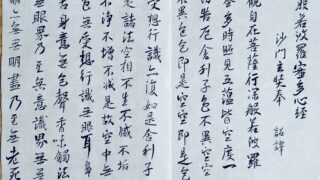 般若波羅蜜多心経
沙門玄奘奉 詔譯
觀自在菩薩行深般若波羅
蜜多時照見五蕴皆空度一
切苦厄舍利子色不異空空
不異色色即是空空即是色
受想行識亦復如是舍利子
是諸法空相不生不滅不垢
不净不增不減是故空中無
色無受想行識無眼耳鼻
舌身意無色聲香味觸法
無眼界乃至無意識界無無
明亦無無明盡乃至無老死